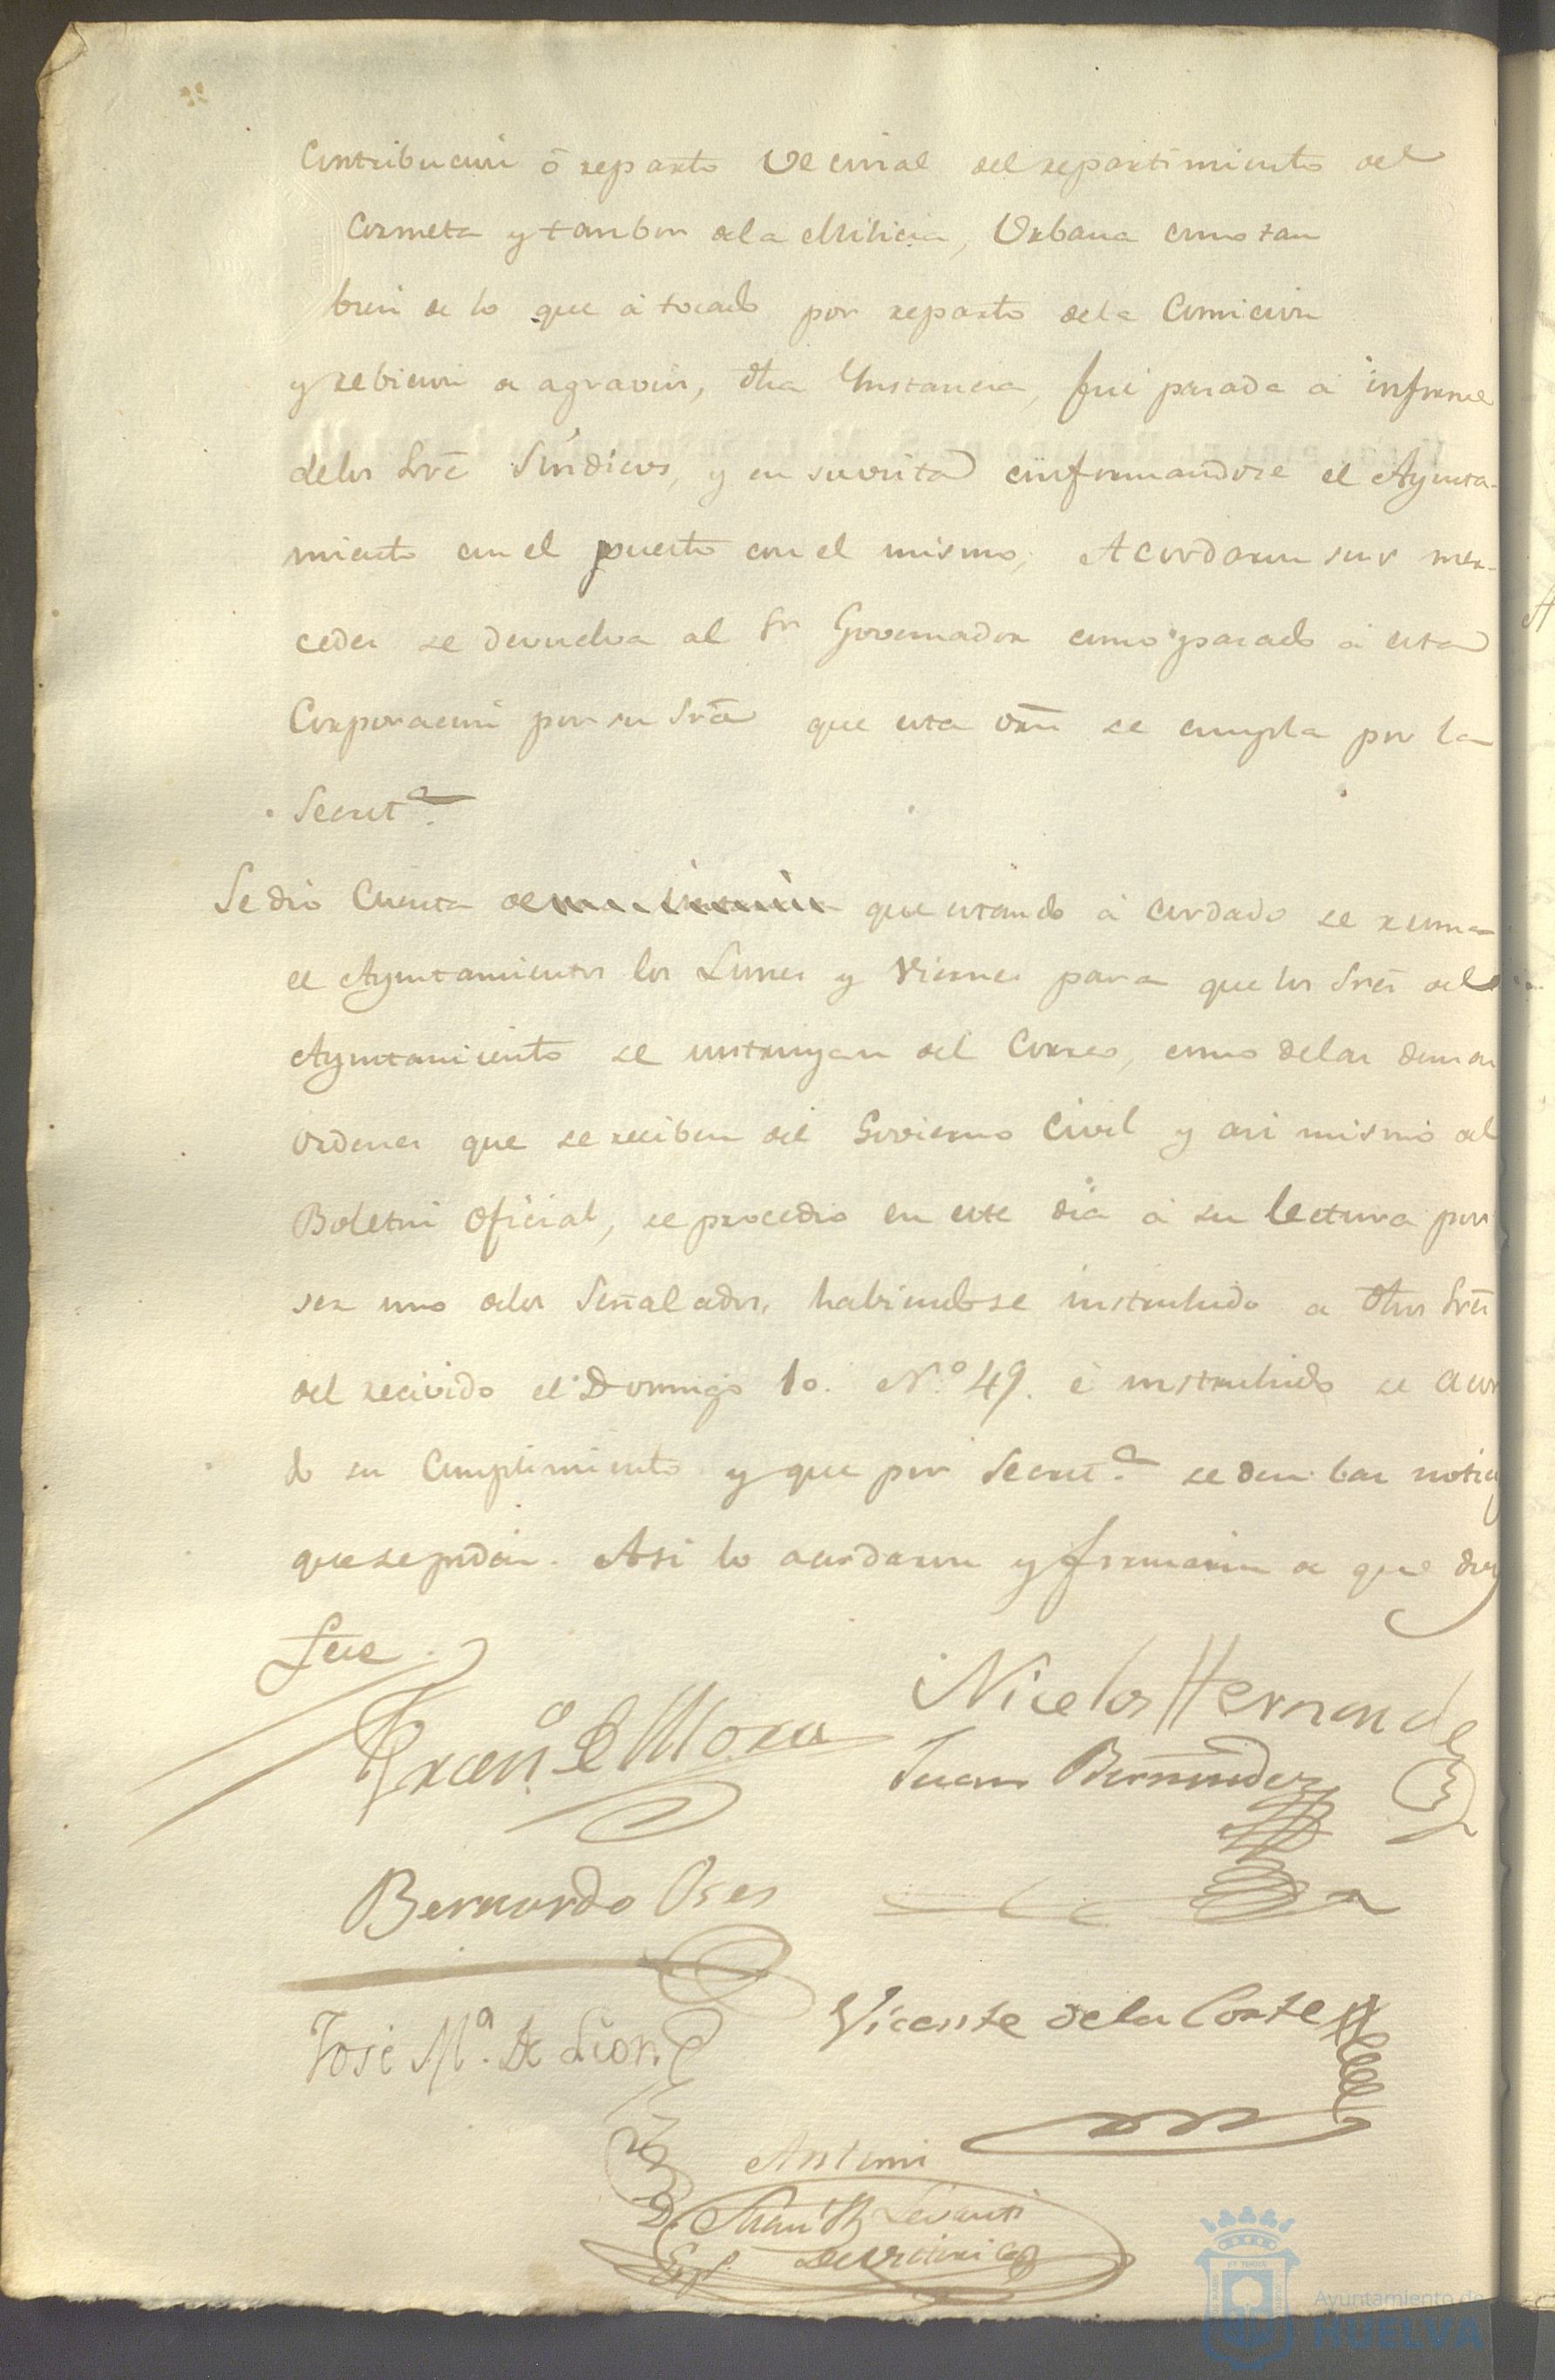 Contribucion ó reparto Vecinal del repartimiento del
Corneta y tambor dela Milicia, Urbana como tam
bien de lo que á tocado por reparto dela Comicion
y rebicion de agravios, dha Ynstancia, fué pasada á informe
delos Sres Sindicos y en su vista conformandose el Ayunta-
miento con el puesto con el mismo, Acordaron sus mer-
cedes se devuelva al Sor Governador como pasado á esta
Corporacion por su Sria que esta orn se cumpla por la
Secreta.
Se dió Cuenta de que estando á cordado se reuna
el Ayuntamientos los Lunes y Viernes para que los Sres del
Ayuntamiento se instruyan del Correo, como delas demas
ordenes que se reciben del Govierno Civil y asi mismo del
Boletin Oficial, se procedio en este dia á su lectura por
ser uno delos Señalados, habiendose instruhido a dhos Sres
del recivido el Domingo 10. No. 49. é instruhido se acor
do su Cumplimiento y que por Secreta. se den las noticias
que se pidan. Asi lo acordaron y firmaron de que doy
fee.
Franco de Mora
Nicolas Hernandez
Juan Bermudez
Bernardo Oses
José Ma. De Lion
Vicente dela Corte
Antemi
Ayuntamiento de
HUELVA